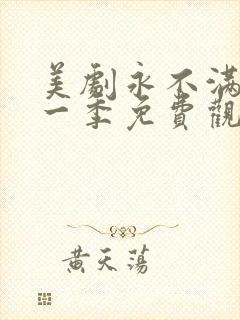 美劇永不滿
一季免費觀
黃天蕩